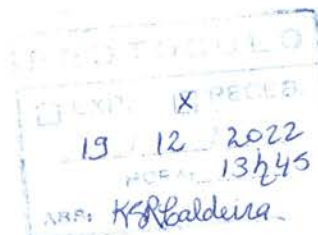 PROTOCOLO
EXP. X RECEB.
19 12 2022
HORA: 13h45
ASS: KSRCaldeira